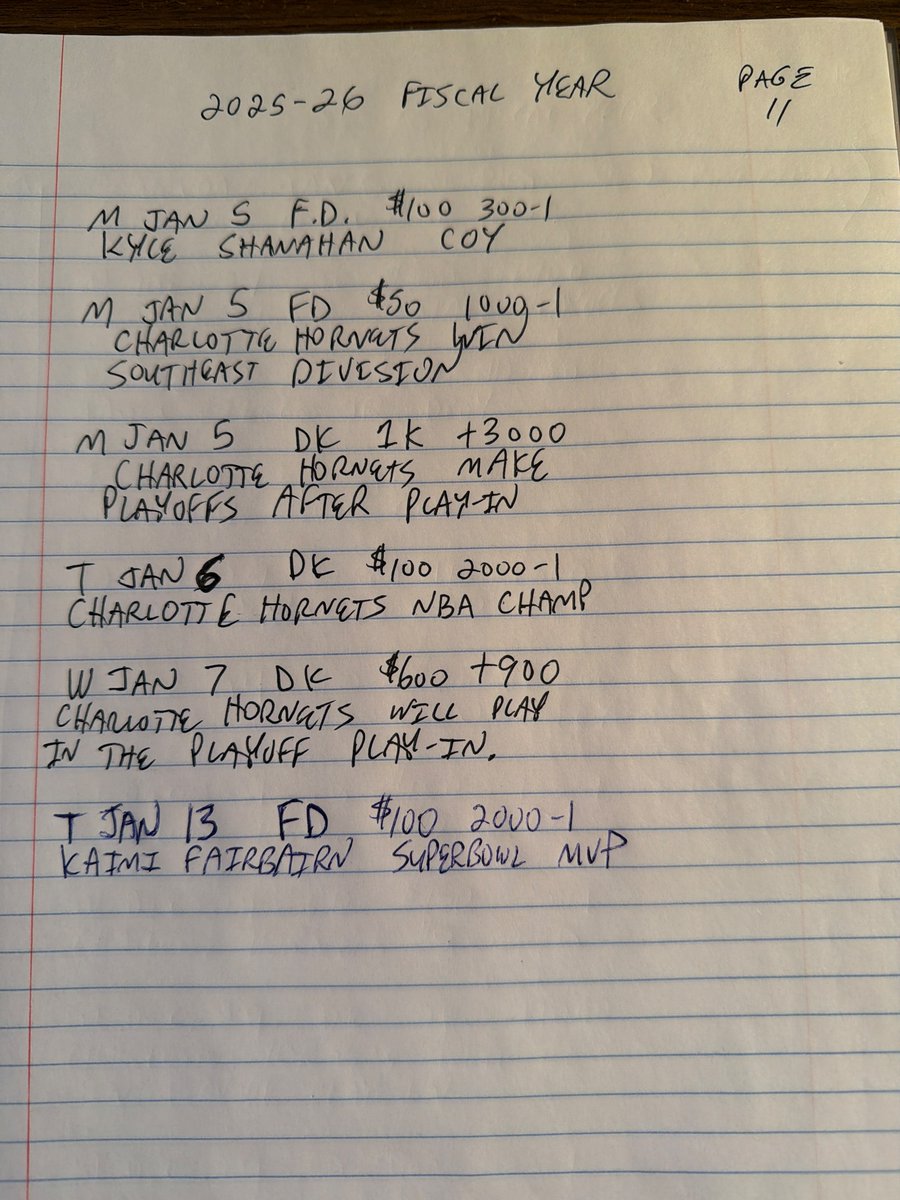 2025-26 FISCAL YEAR
PAGE
11
M JAN 5 F.D. $100 300-1
KYLE SHANAHAN COY
M JAN 5 FD $50 1000-1
CHARLOTTE HORNETS WIN
SOUTHEAST DIVISION
M JAN 5 DK 1K +3000
CHARLOTTE HORNETS MAKE
PLAYOFFS AFTER PLAY-IN
T JAN 6 DK $100 2000-1
CHARLOTTE HORNETS NBA CHAMP
W JAN 7 DK $600 +900
CHARLOTTE HORNETS WILL PLAY
IN THE PLAYOFF PLAY-IN.
T JAN 13 FD $100 2000-1
KAIMI FAIRBAIRN SUPERBOWL MVP